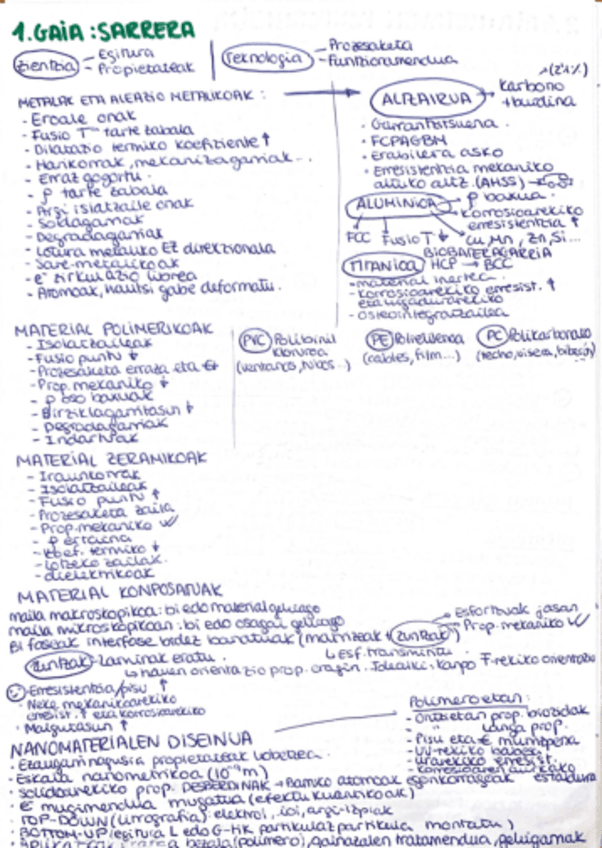 1.GAIA: SARRERA
Zientzia - Egitura
- Propietateak
Teknologia - Prozesaketa
- Funtzionamendua
METALAK ETA ALEAZIO METALIKOAK:
- Eroale onak
- Fusio T tarte zabala
- Dilatazio termiko koefiziente ↑
- Harikorrak, mekanizagarriak...
- Erraz gogortu.
- ρ tarte zabala
- Argi islatzaile onak
- Soldagarriak
- Degradagarriak
- Lotura metaliko EZ direkzionala
- Sare-metalikoak
- e⁻ zirkulazio librea
- Atomoak, hautsi gabe deformatu.
ALTZAIRUA → Karbono (2'1%)
+burdina
- Garrantzitsuena.
- FCP
- Erabilera asko
- Erresistentzia mekaniko
altuko altz. (AHSS)
ALUMINIOA → ρ baxua.
Korrosioarekiko
erresistentzia ↑
FCC Fusio T ↓ Cu, Mn, Zn, Si...
BIOBATERAGARRIA
TITANIOA HCP → BCC
- material inertea.
- Korrosioarekiko erresist. ↑
eta higadurarekiko
- Osteointegratzailea
MATERIAL POLIMERIKOAK
- Isolatzaileak
- Fusio puntu ↓
- Prozesaketa erraza eta €↓
- Prop. mekaniko ↓
- ρ oso baxuak
- Birziklagarritasun ↑
- Degradagarriak
- Indartuak
PVC Polibinil
kloruroa
(ventanas, tubos...)
PE Polietilenoa
(cables, film...)
PC Polikarbonato
(techo, visera, biberoi)
MATERIAL ZERAMIKOAK
- Iraunkorrak
- Isolatzaileak
- Fusio puntu ↑
- Prozesaketa zaila
- Prop. mekaniko ✓
- ρ ertaina
- Koef. termiko ↓
- Lotzeko zailak.
- dielektrikoak
MATERIAL KONPOSATUAK
maila makroskopikoa: bi edo material gehiago
maila mikroskopikoan: bi edo osagai gehiago
Bi faseak interfase bidez banatuak (matrizeak + zuntzak)
Esfortzuak jasan
Prop. mekaniko ✓
↳ Esf. transmititu
Zuntzak - Laminak eratu.
↳ hauen orientazio prop. eragin. Idealki: kanpo F-rekiko orientatu
- Erresistentzia/pisu ↑
- Neke mekanikoarekiko
erresist. ↑ eta korrosioarekiko
- Malgutasun ↑
NANOMATERIALEN DISEINUA
- Ezaugarri nagusia propietateak hobetzea.
- Eskala nanometrikoa (10⁻⁹m)
- Solidoarekiko prop. DESBERDINAK → Barruko atomoak egonkorragoak
- e⁻ mugimendua mugatua (efektu kuantikoak)
- TOP-DOWN (litografia): elektroi, ioi, argi-izpiak
- BOTTOM-UP (egitura L edo G-tik partikulaz partikula montatu)
Polimeroetan:
- Ontzietan prop. biozidak
" langa prop.
- Pisu eta € murrizpena
- UV-rekiko babesa.
- Urarekiko erresist.
- Korrosioaren aurkako
estaldura
bezala (polimero), gainazalen tratamendua, geluigarriak